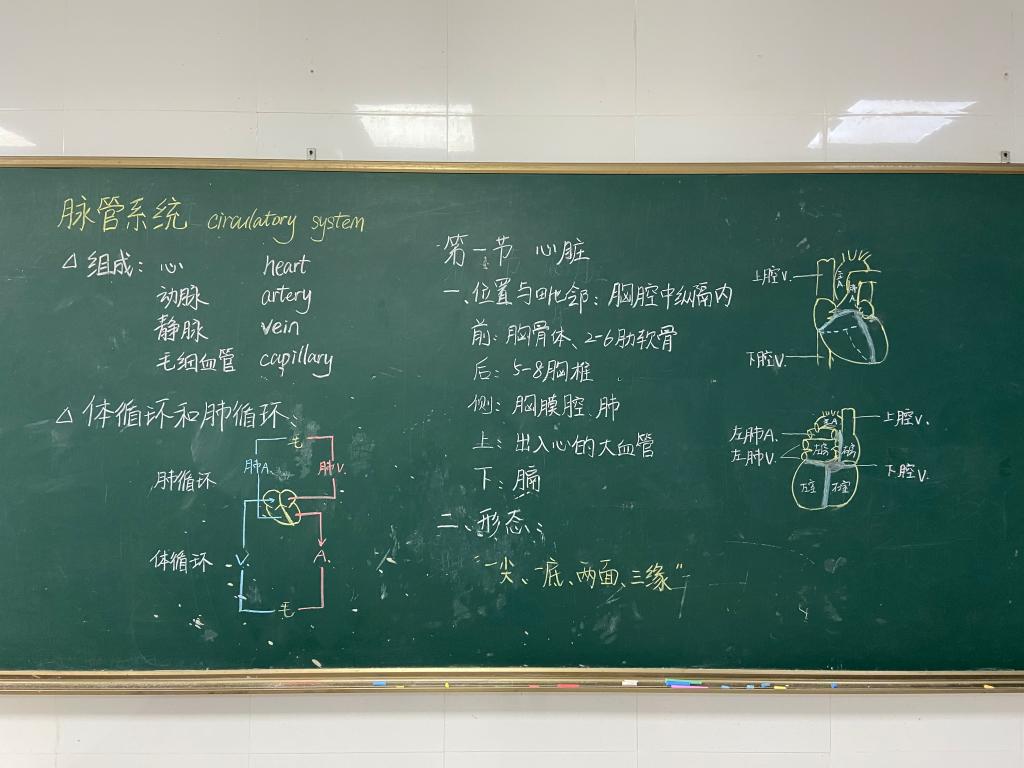 脉管系统 circulatory system
△ 组成：心 heart
动脉 artery
静脉 vein
毛细血管 capillary
△ 体循环和肺循环：
毛
肺A. 肺V.
肺循环
体循环 V. A.
毛
第一节 心脏
一、位置与毗邻：胸腔中纵隔内
前：胸骨体、2-6肋软骨
后：5-8胸椎
侧：胸膜腔、肺
上：出入心的大血管
下：膈
二、形态：
"一尖、一底、两面、三缘"
上腔V.
主A
肺A
下腔V.
主A
上腔V.
左肺A.
左肺V.
左房 右房
下腔V.
左室 右室